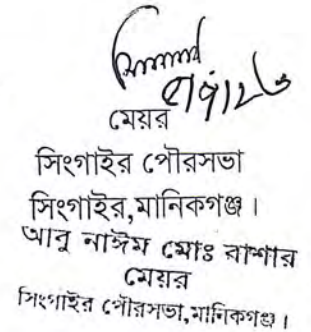 মেয়র
সিংগাইর পৌরসভা
সিংগাইর,মানিকগঞ্জ।
আবু নাঈম মোঃ বাশার
মেয়র
সিংগাইর পৌরসভা,মানিকগঞ্জ।